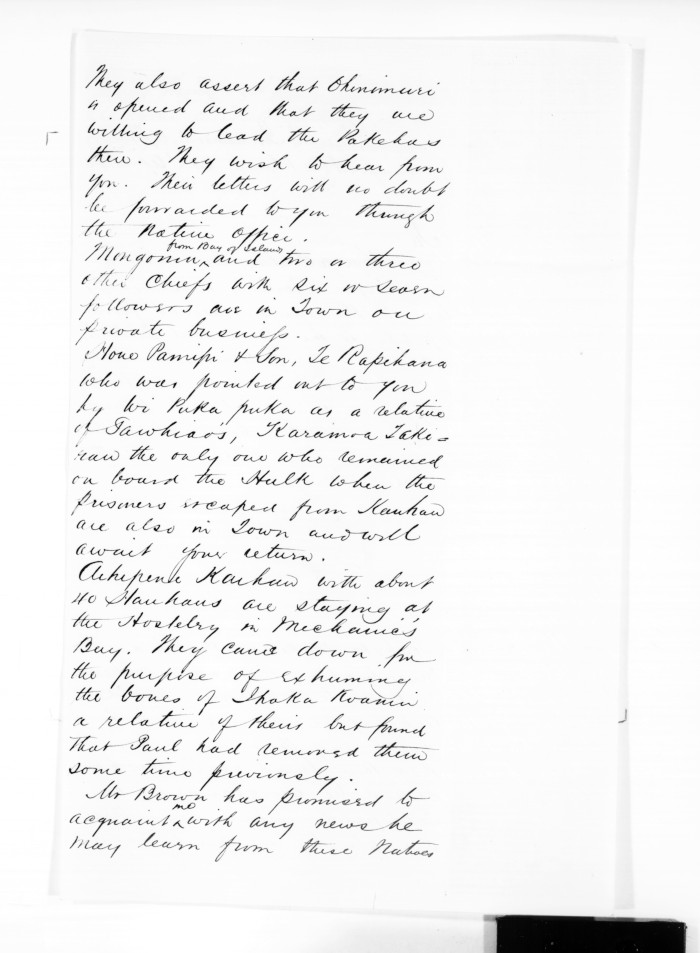 They also assert that Ohinimuri
is opened and that they are
willing to lead the Pakehas
there. They wish to hear from
you. Their letters will no doubt
be forwarded to you through
the Native Office.
from Bay of Islands
Mongonui and two or three
other Chiefs with six or seven
followers are in Town on
private business.
Hone Pamipi & Son, Te Rapihana
who was pointed out to you
by Wi Puka puka as a relative
of Tawhiao's, Karamoa Taki=
rau the only one who remained
on board the Hulk when the
prisoners escaped from Kaukau
are also in Town and will
await your return.
Kaihau with about
40 Hauhaus are staying at
the Hostelry in Mechanic's
Bay. They came down for
the purpose of exhuming
the bones of Ihaka
a relative of theirs but found
that Paul had removed them
some time previously.
Mr Brown has promised to
me
acquaint with any news he
may learn from these Natives